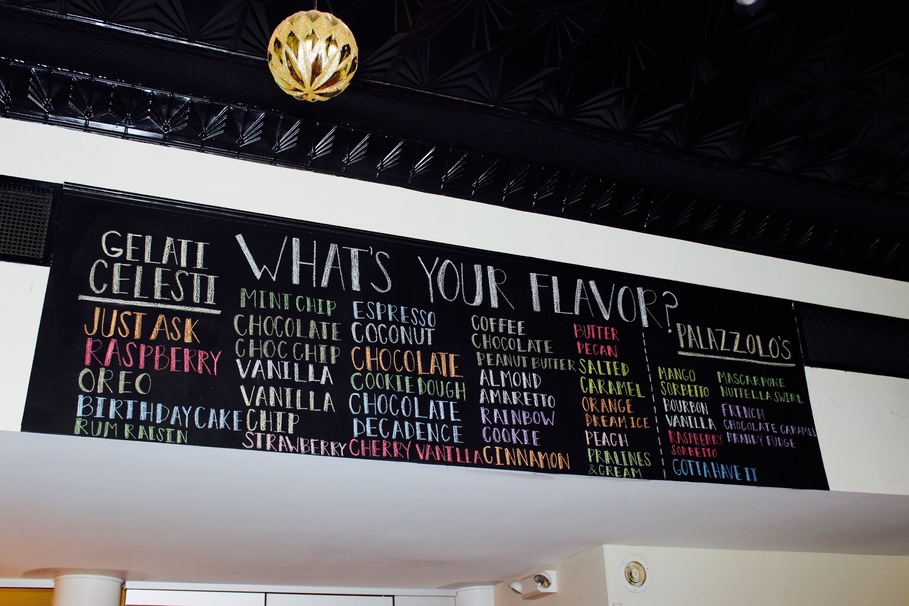 WHAT'S YOUR FLAVOR?
GELATI
CELESTI
JUST ASK
RASPBERRY
OREO
BIRTHDAY CAKE
RUM RAISIN
MINT CHIP
CHOCOLATE
CHOC CHIP
VANILLA
VANILLA
CHIP
STRAWBERRY
ESPRESSO
COCONUT
CHOCOLATE
COOKIE DOUGH
CHOCOLATE
DECADENCE
CHERRY VANILLA
COFFEE
CHOCOLATE
PEANUT BUTTER
ALMOND
AMARETTO
RAINBOW
COOKIE
CINNAMON
BUTTER
PECAN
SALTED
CARAMEL
ORANGE
DREAM ICE
PEACH
PRALINES
& CREAM
PALAZZOLO'S
MANGO
SORBETTO
BOURBON
VANILLA
RASPBERRY
SORBETTO
GOTTA HAVE IT
MASCARPONE
NUTTELLA SWIRL
FRENCH
CHOCOLATE CARAMEL
BRANDY FUDGE